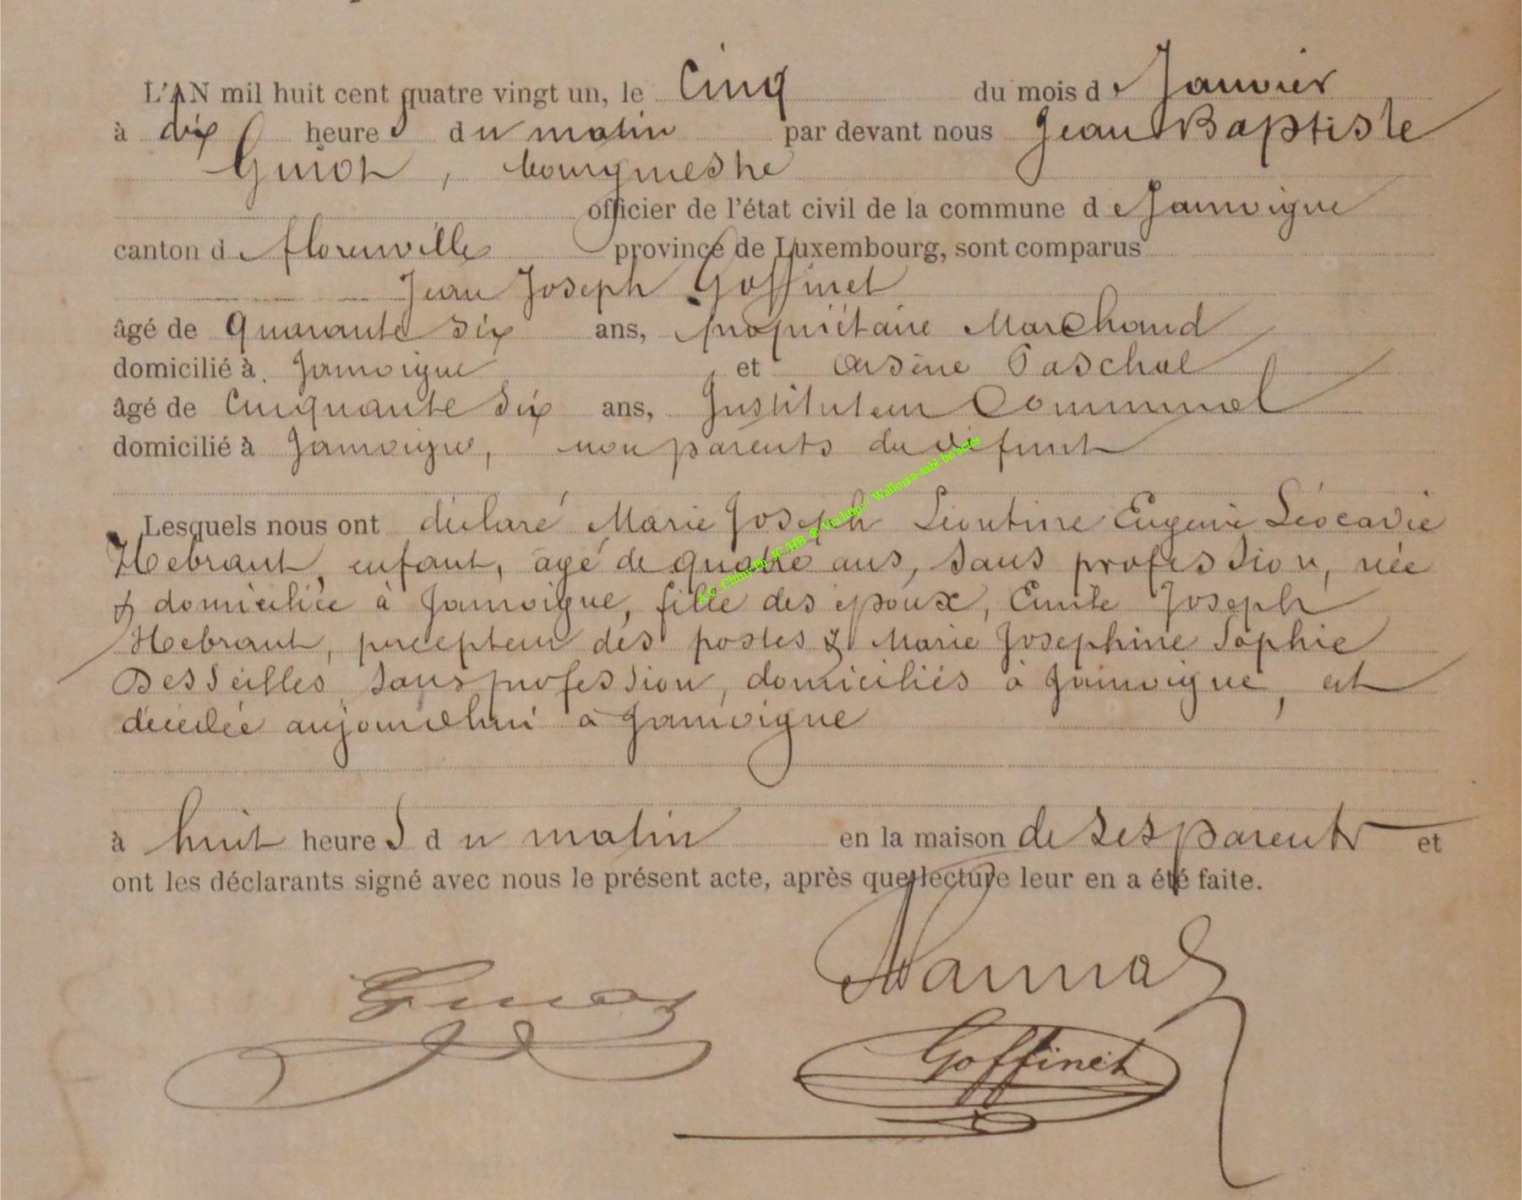 L'AN mil huit cent quatre vingt un, le Cinq du mois de Janvier
à dix heures du matin par devant nous Jean Baptiste
Guiot, bourgmestre
officier de l'état civil de la commune de Jamoigne
canton de florenville province de Luxembourg, sont comparus
Jean Joseph Goffinet
âgé de Quarante six ans, propriétaire Marchand
domicilié à Jamoigne et Arsène Paschal
âgé de Cinquante Six ans, Instituteur Communal
domicilié à Jamoigne, non parents du défunt
Lesquels nous ont déclaré Marie Joseph Léontine Eugenie Léocadie
Hebrant, enfant, âgé de quatre ans, sans profession, née
& domiciliée à Jamoigne, fille des époux, Emile Joseph
Hebrant, percepteur des postes & Marie Josephine Sophie
Desseilles sans profession, domiciliés à Jamoigne, est
décédée aujourdhui à Jamoigne
à huit heures du matin en la maison de ses parents et
ont les déclarants signé avec nous le présent acte, après que lecture leur en a été faite.
Goffinet